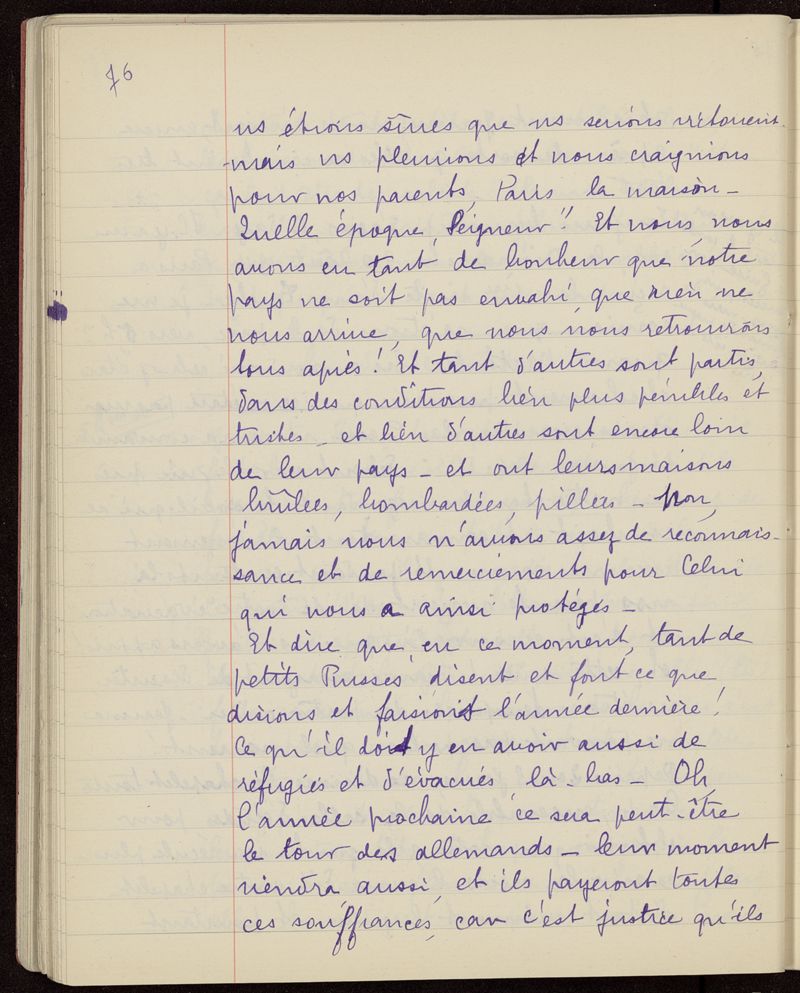 76
ns étions sûres que ns serions victorieux.
mais ns pleurions et nous craignions
pour nos parents, Paris la maison –
Quelle époque, Seigneur !! Et nous nous
avons eu tant de bonheur que notre
pays ne soit pas envahi, que rien ne
nous arrive, que nous nous retrouvions
tous après ! Et tant d'autres sont partis,
dans des conditions bien plus pénibles et
tristes – et bien d'autres sont encore loin
de leur pays – et ont leurs maisons
brûlées, bombardées, pillées – Non,
jamais nous n'aurons assez de reconnais-
sance et de remerciements pour Celui
qui nous a ainsi protégés –
Et dire que, en ce moment, tant de
petits Russes, disent et font ce que
disions et faisions l'année dernière !
Ce qu'il doit y en avoir aussi de
réfugiés et d'évacués là-bas – Oh,
l'année prochaine ce sera peut-être
le tour des allemands – leur moment
viendra, aussi, et ils payeront toutes
ces souffrances, car c'est justice qu'ils